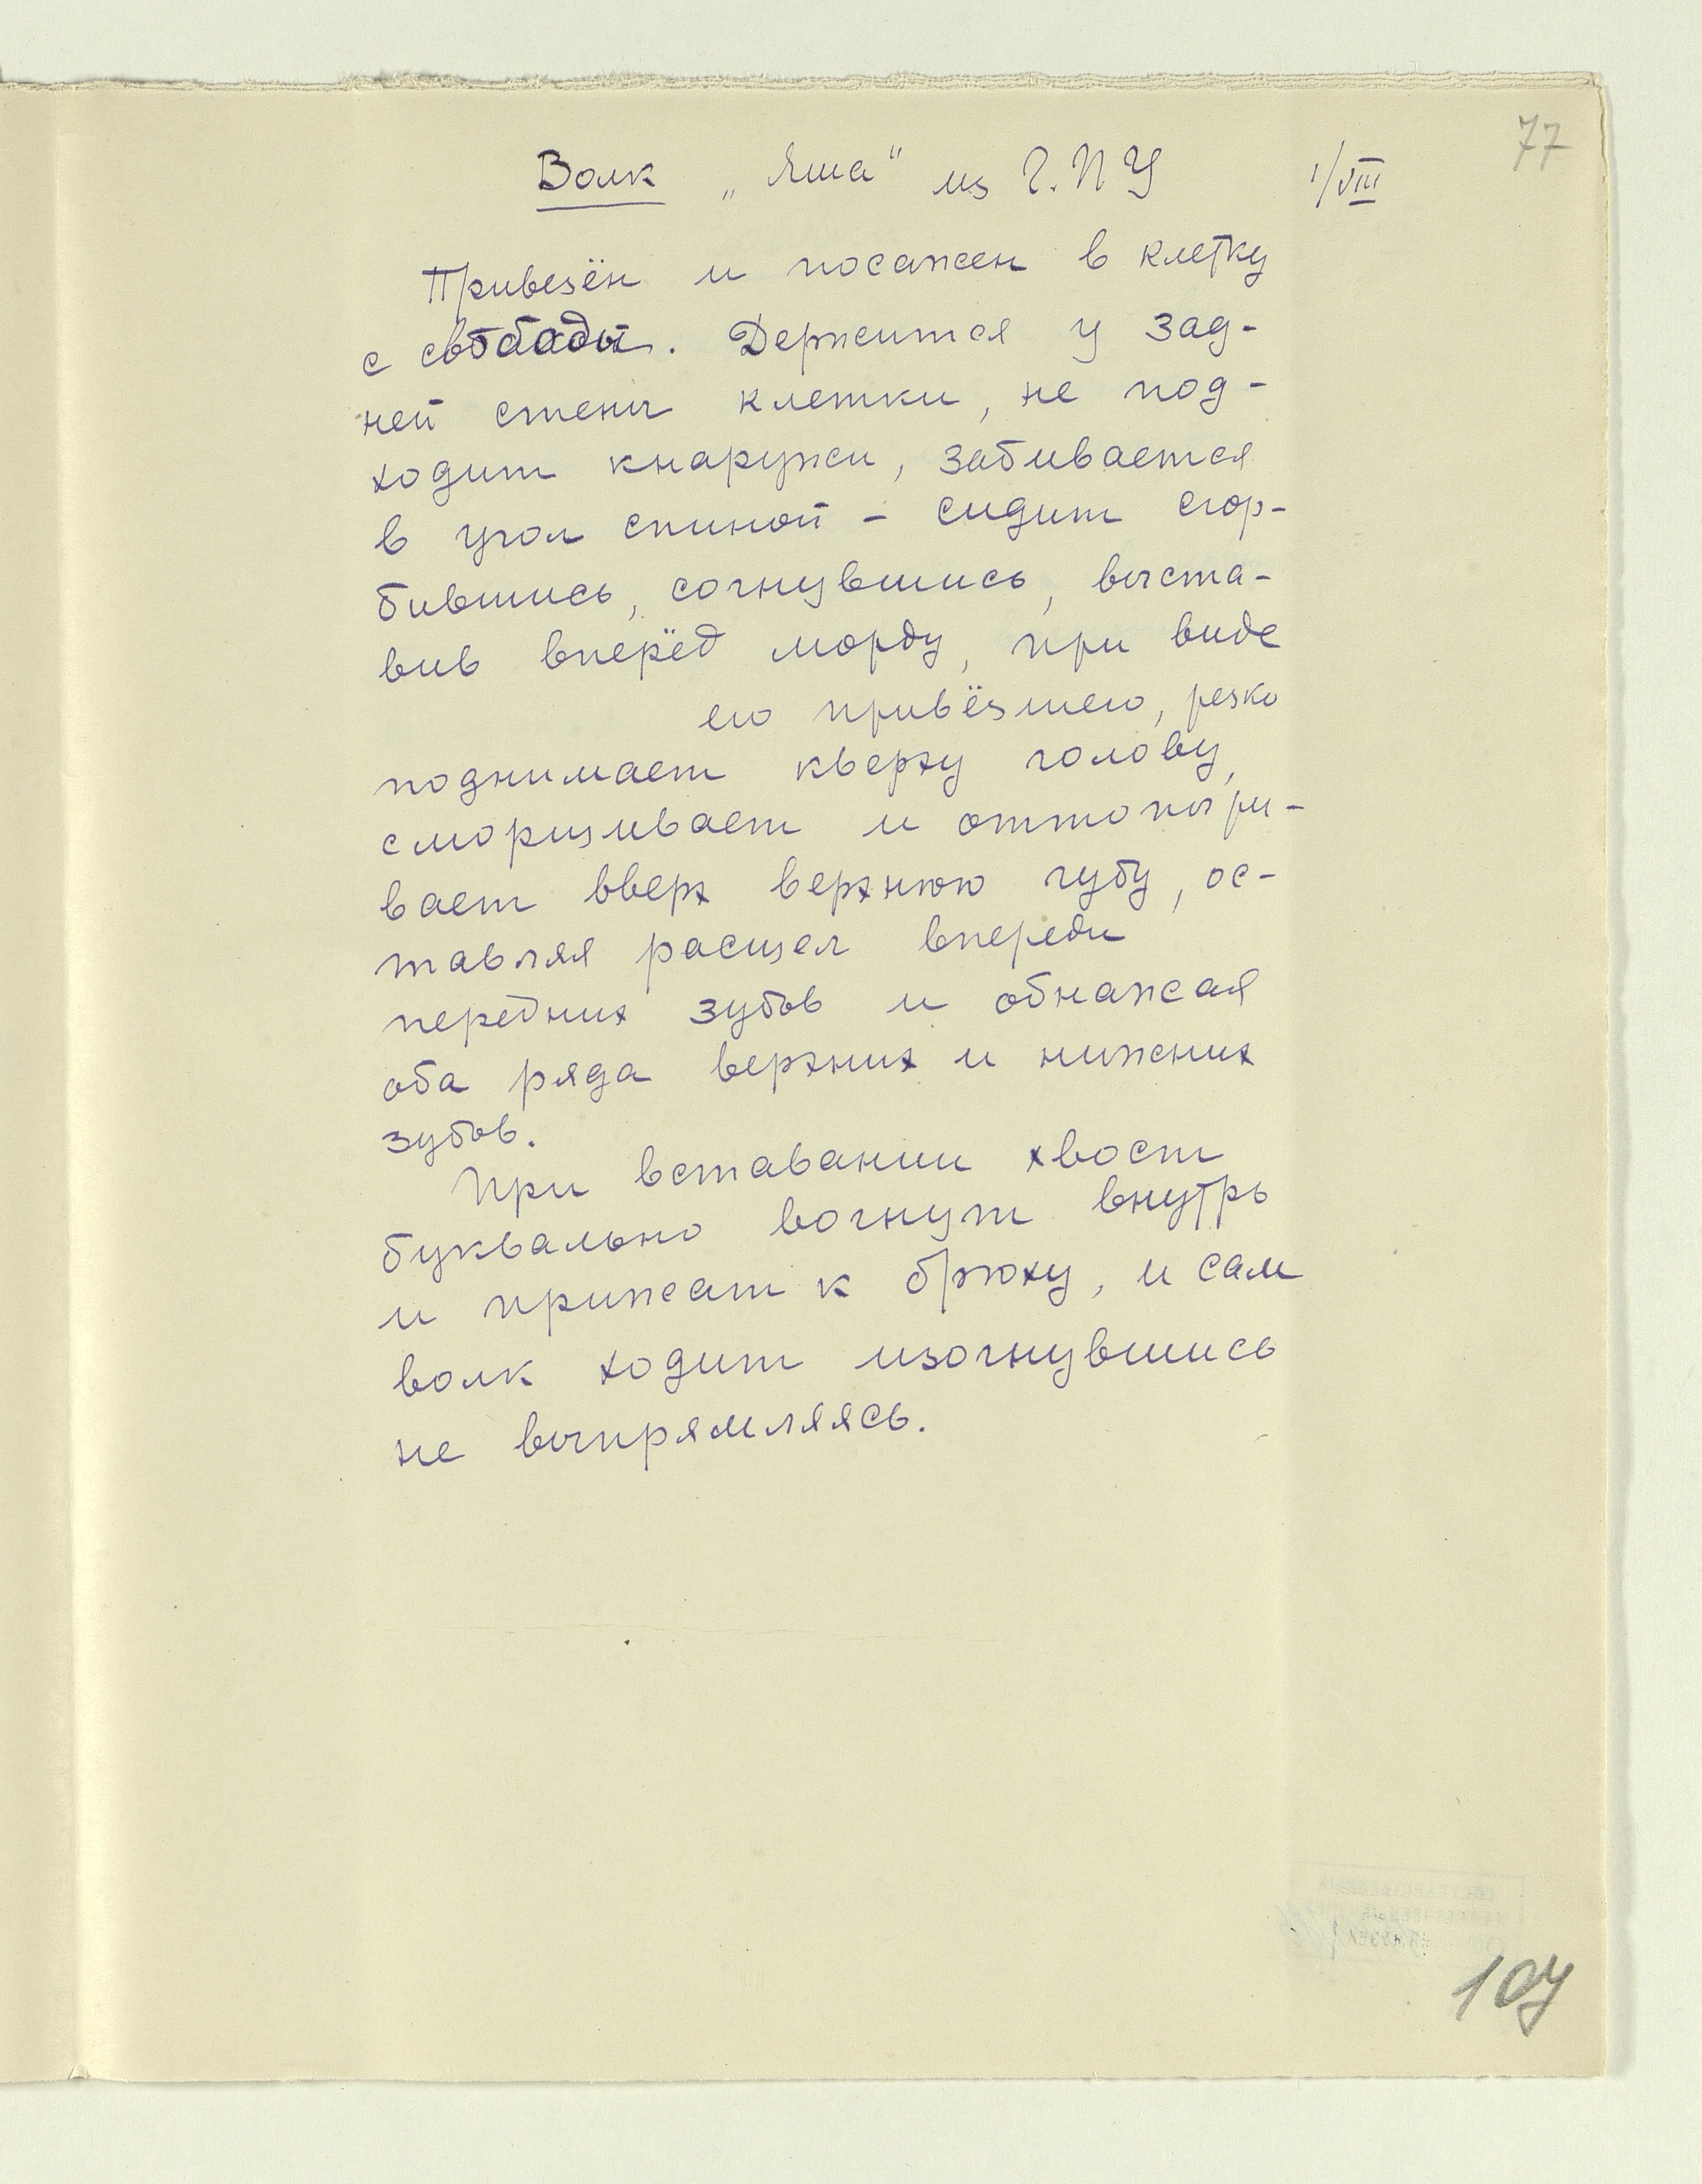 77
Волк „Яша“ из Г.ПУ 1/VIII
Привезён и посажен в клетку
с свободы. Держится у зад-
ней стены клетки, не под-
ходит кнаружи, забивается
в угол спиной – сидит сгор-
бившись, согнувшись, выста-
вив вперёд морду, при виде
его привёзшего, резко
поднимает кверху голову,
сморщивает и оттопыри-
вает вверх верхнюю губу, ос-
тавляя расщел впереди
передних зубов и обнажая
оба ряда верхних и нижних
зубов.
При вставании хвост
буквально вогнут внутрь
и прижат к брюху, и сам
волк ходит изогнувшись
не выпрямляясь.
107